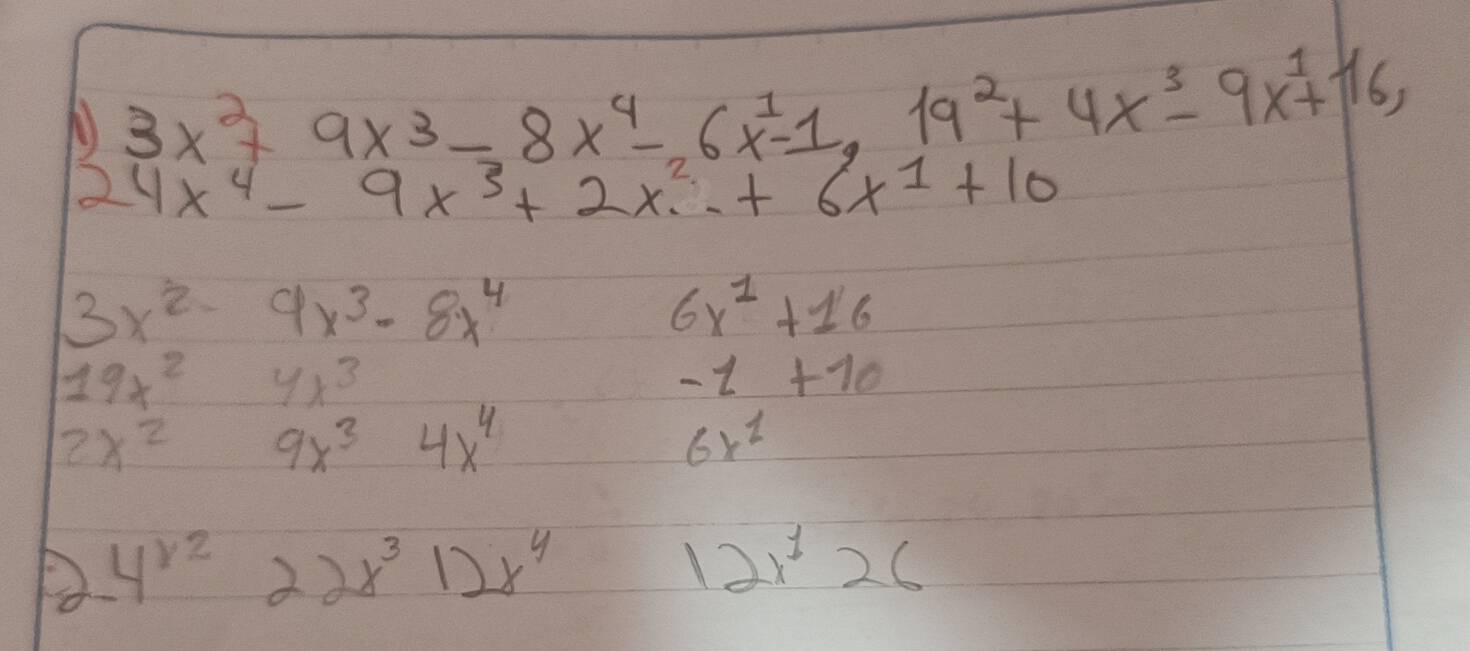 1) 3x² + 9x³ - 8x⁴ - 6x¹ - 1, 19² + 4x³ - 9x¹ + 16,
2 4x⁴ - 9x³ + 2x² + 6x¹ + 10
3x² 9x³ - 8x⁴ 6x¹ + 16
19x² 4x³ -1 + 10
2x² 9x³ 4x⁴ 6x¹
24x² 22x³ 12x⁴ 12x¹ 26